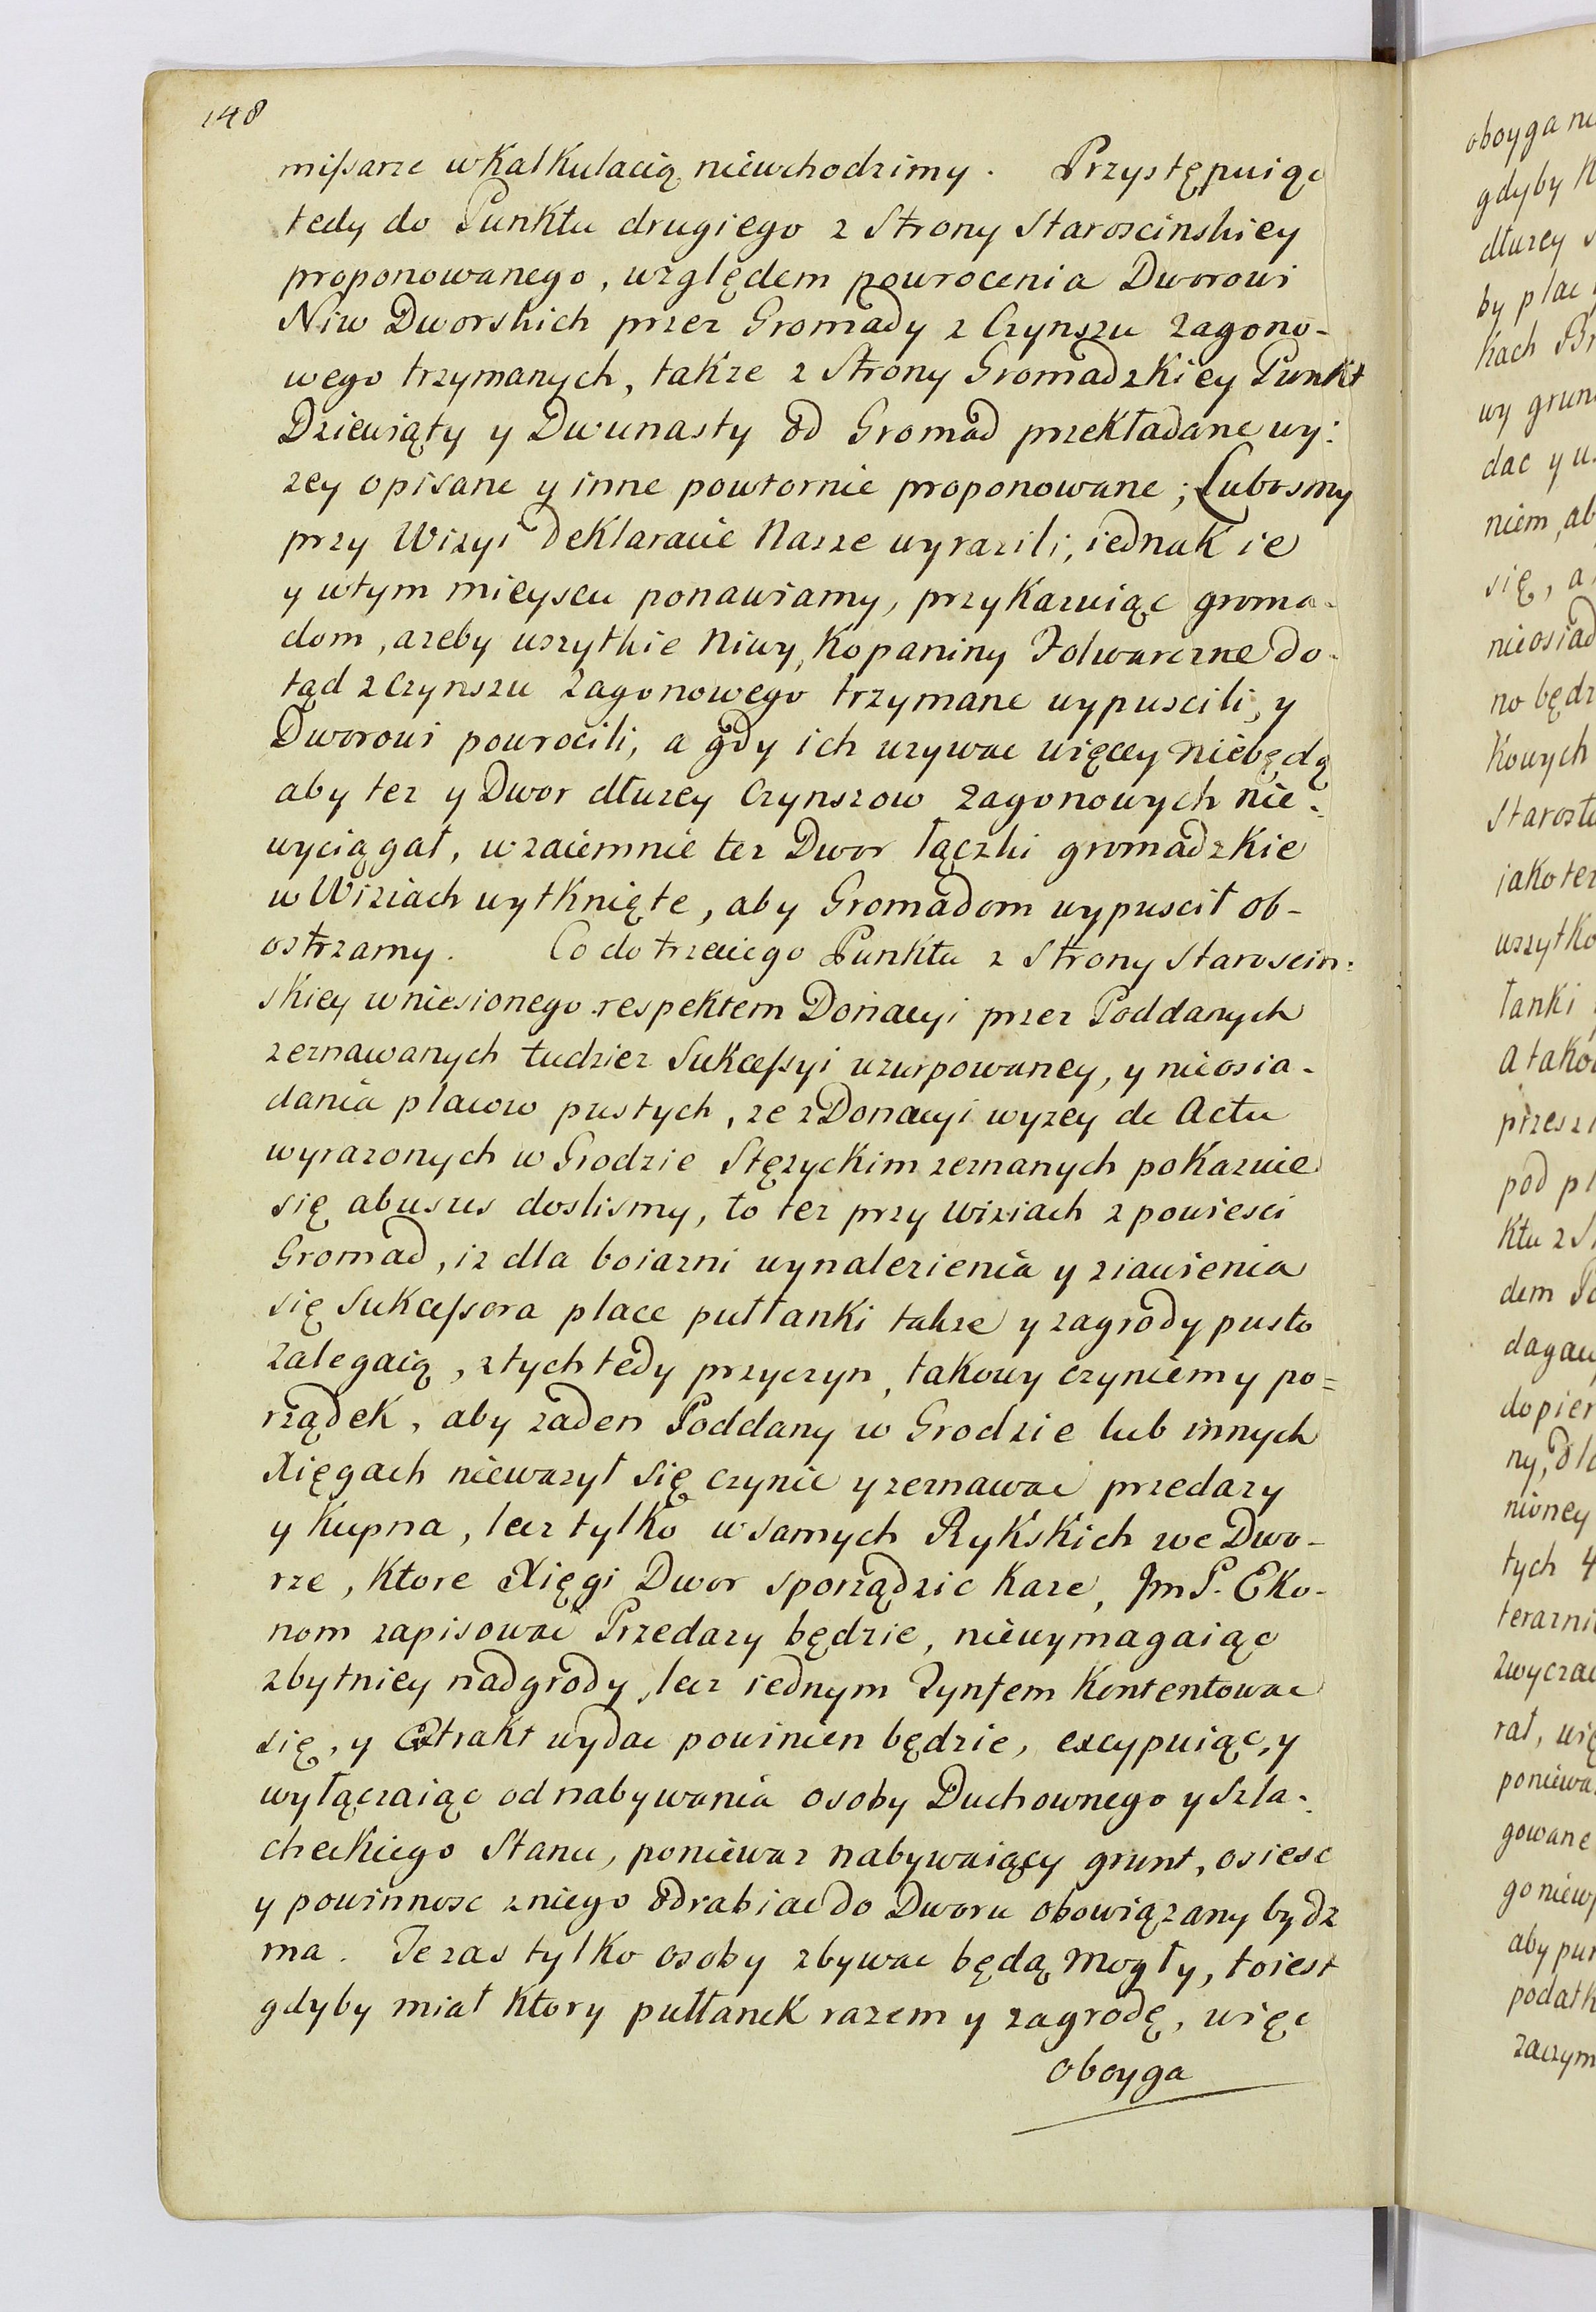 148
missarze w Kalkulacią niewchodzimy. Przystępuiąc
tedy do Punktu drugiego z Strony Staroscinskiey
proponowanego, względem powrocenia Dworowi
Niw Dworskich przez Gromady z Czynszu Zagono-
wego trzymanych, takze z Strony Gromadzkiey Punkt
Dziewiąty y Dwunasty od Gromad przekładane wy:
zey opisane y inne powtornie proponowane; Lubosmy
przy Wizyi deklaracie Nasze wyrazili, iednak ie
y wtym mieyscu ponawiamy, przykazuiąc groma-
dom, azeby wszytkie Niwy, Kopaniny Folwarczne do-
tąd z Czynszu Zagonowego trzymane wypuscili, y
Dworowi powrocili, a gdy ich uzywac więcey niebędą
aby tez y Dwor dłuzey Czynszow Zagonowych nie-
wyciągał, wzaiemnie tez Dwor łączki gromadzkie
w Wiziach wytknięte, aby Gromadom wypuscił ob-
ostrzamy. Co do trzeciego Punktu z Strony Staroscin:
skiey wniesionego respektem Donacyi przez Poddanych
zeznawanych tudziez Sukcessyi uzurpowaney, y nieosia-
dania placow pustych, ze z Donacyi wyzey de Actu
wyrazonych w Grodzie Stęzyckim zeznanych pokazuie
się abusus doslismy, to tez przy Wiziach z powiesci
Gromad, iz dla boiazni wynalezienia y ziawienia
się Sukcessora place pułłanki takze y zagrody pusto
zalegaią, z tych tedy przyczyn, takowy czyniemy po=
rządek, aby zaden Poddany w Grodzie lub innych
Xięgach niewazył się czynic y zeznawac przedazy
y Kupna, lecz tylko w samych Rykskich we Dwo-
rze, Ktore Xięgi Dwor sporządzic kaze, Jm P. Eko-
nom zapisowac Przedazy będzie, niewymagaiąc
zbytniey nadgrody, lecz iednym Tynfem Kontentowac
się, y Extrakt wydac powinien będzie, excypuiąc, y
wyłączaiąc od nabywania osoby Duchownego y Szla-
checkiego Stanu, poniewaz nabywaiący grunt, osiesc
y powinnosc z niego odrabiac do Dworu obowiązany bydz
ma. Te zas tylko osoby zbywac będą mogły, to iest
gdyby miał ktory pułłanek razem y zagrodę, więc
oboyga
oboyga
gdyby
dłuzey
by plac
kach
wy
dac y
niem,
się, a
no
kowych
iako tez
wszytko
łanki
pod
dem
ny,
nioney
tych
rał,
gowane
aby